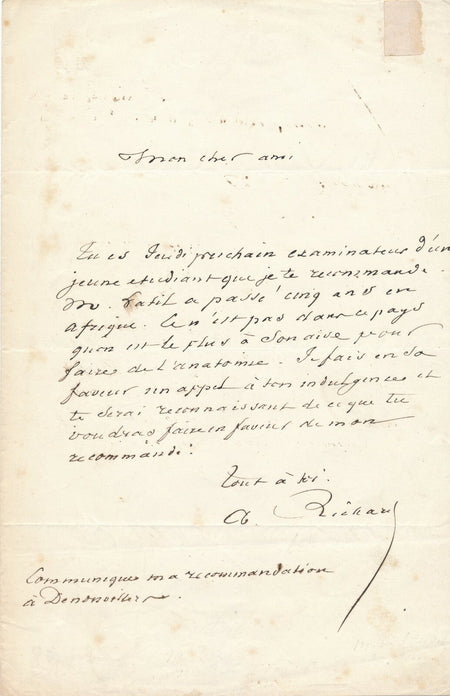 Mon cher ami
Tu es Jeudi prochain examinateur d'un
jeune etudiant que je te recommande.
M. a passé cinq ans en
afrique. Ce n'est pas dans ce pays
qu'on est le plus à son aise pour
faire de l'anatomie. Je fais en sa
faveur un appel à ton indulgence et
te serai reconnaissant de ce que tu
voudras faire en faveur de mon
recommandé.
tout à toi.
A. Richard
Communique ma recommandation
à Denonvilliers.